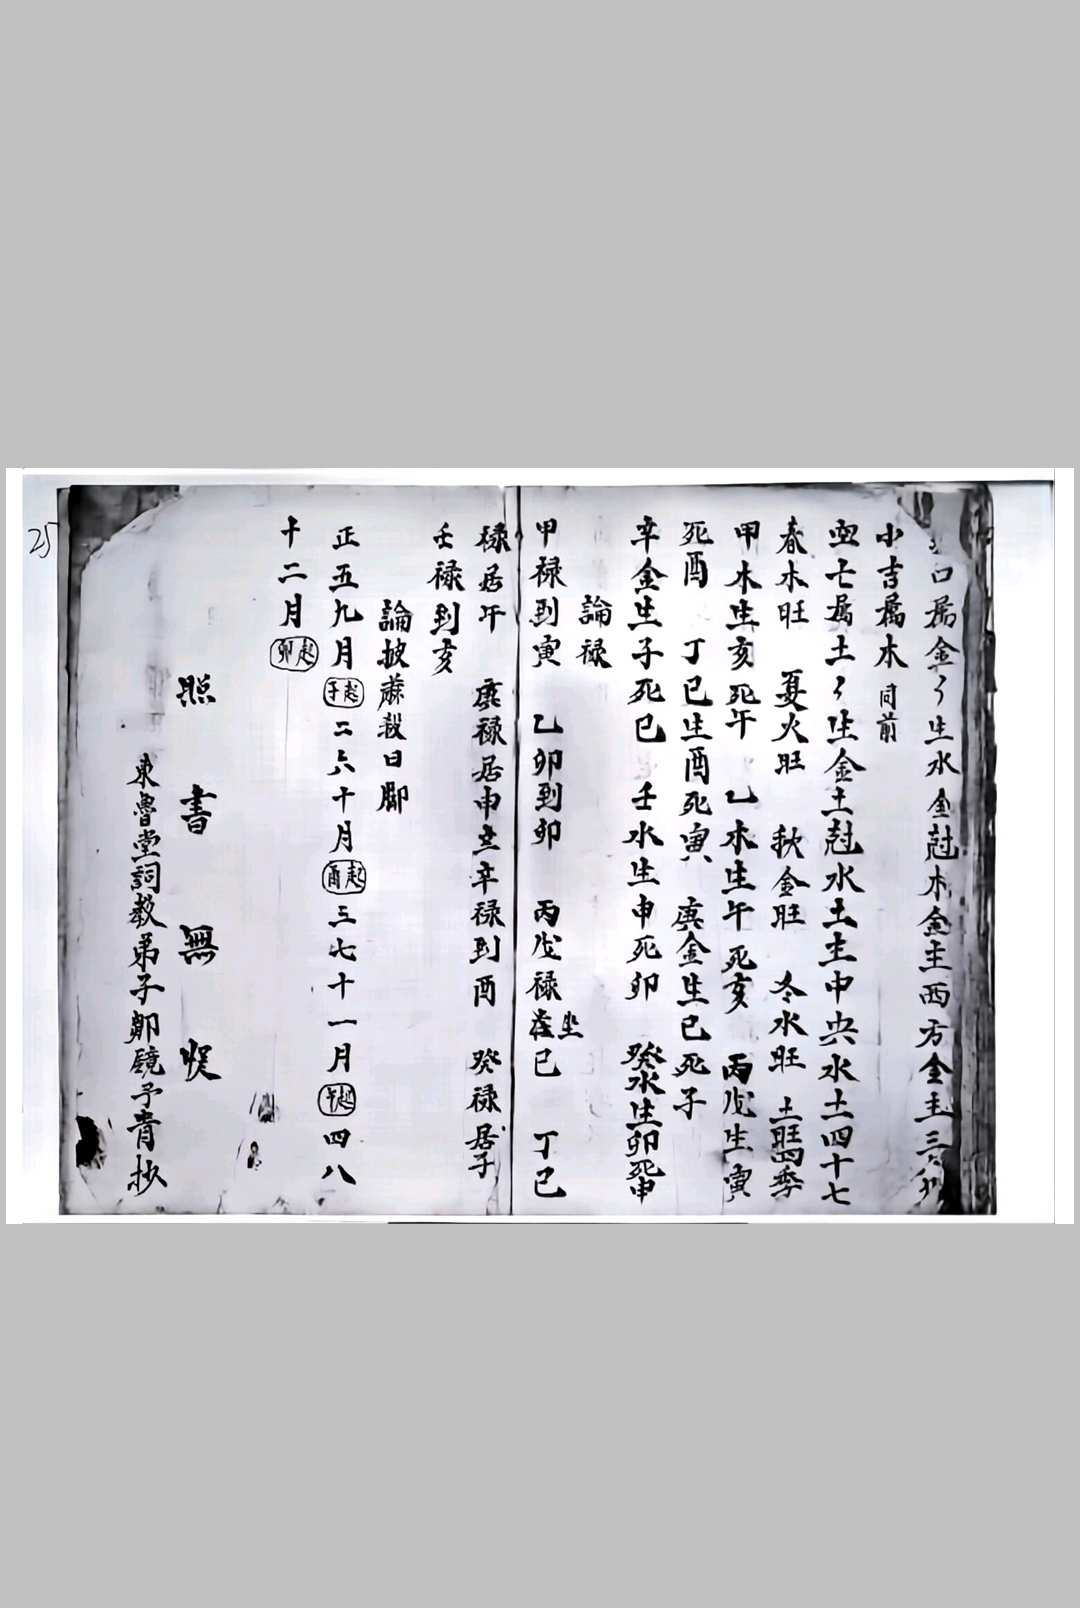 口属金〻生水金尅木金主西方金主三
小吉属木 同前
空亡属土〻生金土尅水土主中央水土四十七
春木旺 夏火旺 秋金旺 冬水旺 土旺四季
甲木生亥死午 乙木生午死亥 丙戊生寅
死酉 丁己生酉死寅 庚金生巳死子
辛金生子死巳 壬水生申死卯 癸水生卯死申
論禄
甲禄到寅 乙卯到卯 丙戊禄巳 丁己
禄居午 庚禄居申 辛禄到酉 癸禄居子
壬禄到亥
論披蔴殺日脚
正五九月起子二六十月起酉三七十一月起午四八
十二月起卯
照書無悮
東魯堂詞教弟子鄭鏡予青抄
25